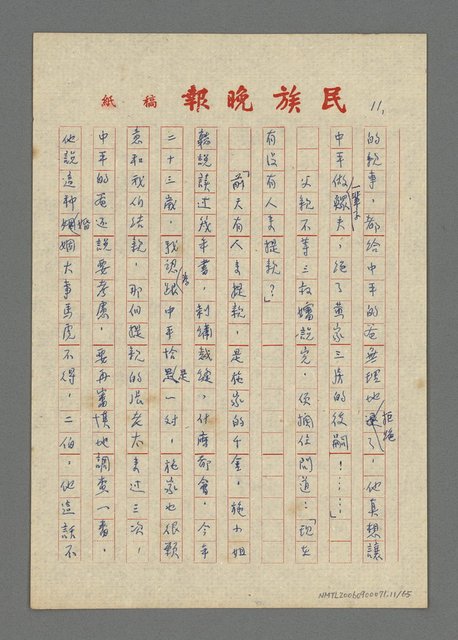 民族晚報 稿紙
11,
的親事,都給中平的爸無理地拒絕了,他真想讓
中平做一輩子鰥夫,絕了黃家三房的後嗣!……」
父親不等三叔嬸說完,便攔住問道:「現在
有沒有人來提親?」
「前天有人來提親,是施家的千金,施小姐
聽說讀过幾年書,刺繡裁縫,什麼都會,今年
二十三歲,我認為跟中平恰是一对,施家也很願
意和我們結親,那個提親的張老大來过三次,
中平的爸还說要考慮,要再審慎地調查一番,
他說這种婚姻大事馬虎不得,二伯,他這話不
NMTL20060900071.11/65